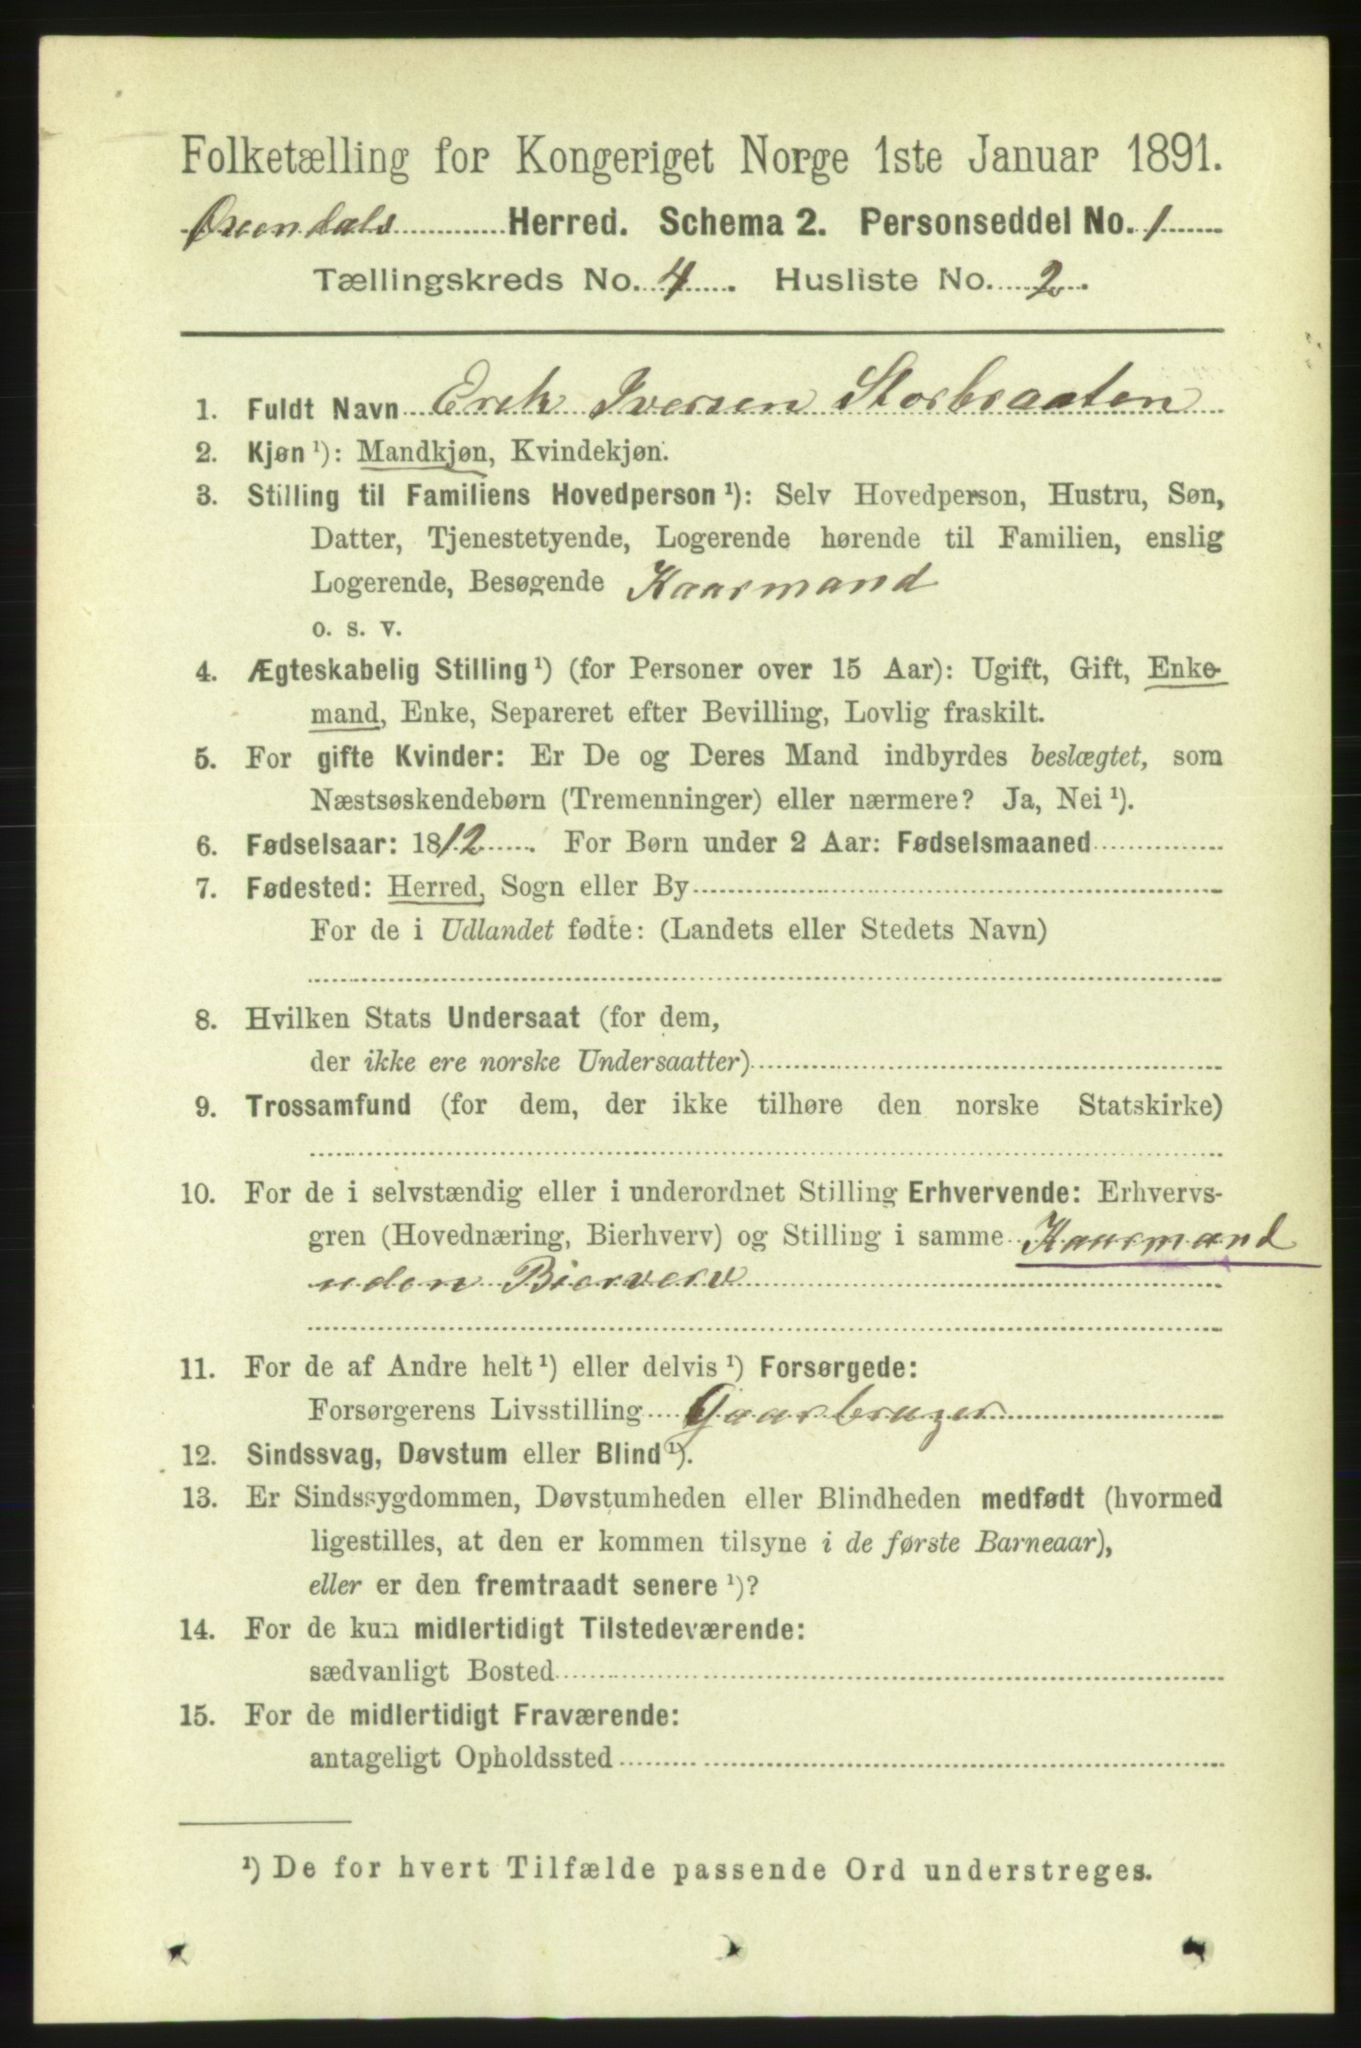 Folketælling for Kongeriget Norge 1ste Januar 1891.
Øvendals Herred. Schema 2. Personseddel No. 1
Tællingskreds No. 4. Husliste No. 2.
1. Fuldt Navn Erik Iversen Storbraaten
2. Kjøn ¹): Mandkjøn, Kvindekjøn.
3. Stilling til Familiens Hovedperson ¹): Selv Hovedperson, Hustru, Søn,
Datter, Tjenestetyende, Logerende hørende til Familien, enslig
Logerende, Besøgende Kaarmand
o. s. v.
4. Ægteskabelig Stilling ¹) (for Personer over 15 Aar): Ugift, Gift, Enke-
mand, Enke, Separeret efter Bevilling, Lovlig fraskilt.
5. For gifte Kvinder: Er De og Deres Mand indbyrdes beslægtet, som
Næstsøskendebørn (Tremenninger) eller nærmere? Ja, Nei ¹).
6. Fødselsaar: 1812. For Børn under 2 Aar: Fødselsmaaned
7. Fødested: Herred, Sogn eller By
For de i Udlandet fødte: (Landets eller Stedets Navn)
8. Hvilken Stats Undersaat (for dem,
der ikke ere norske Undersaatter)
9. Trossamfund (for dem, der ikke tilhøre den norske Statskirke)
10. For de i selvstændig eller i underordnet Stilling Erhvervende: Erhvervs-
gren (Hovednæring, Bierhverv) og Stilling i samme Kaarmand
uden Bierverv
11. For de af Andre helt ¹) eller delvis ¹) Forsørgede:
Forsørgerens Livsstilling Gaarbruger
12. Sindssvag, Døvstum eller Blind ¹).
13. Er Sindssygdommen, Døvstumheden eller Blindheden medfødt (hvormed
ligestilles, at den er kommen tilsyne i de første Barneaar),
eller er den fremtraadt senere ¹)?
14. For de kun midlertidigt Tilstedeværende:
sædvanligt Bosted
15. For de midlertidigt Fraværende:
antageligt Opholdssted
¹) De for hvert Tilfælde passende Ord understreges.